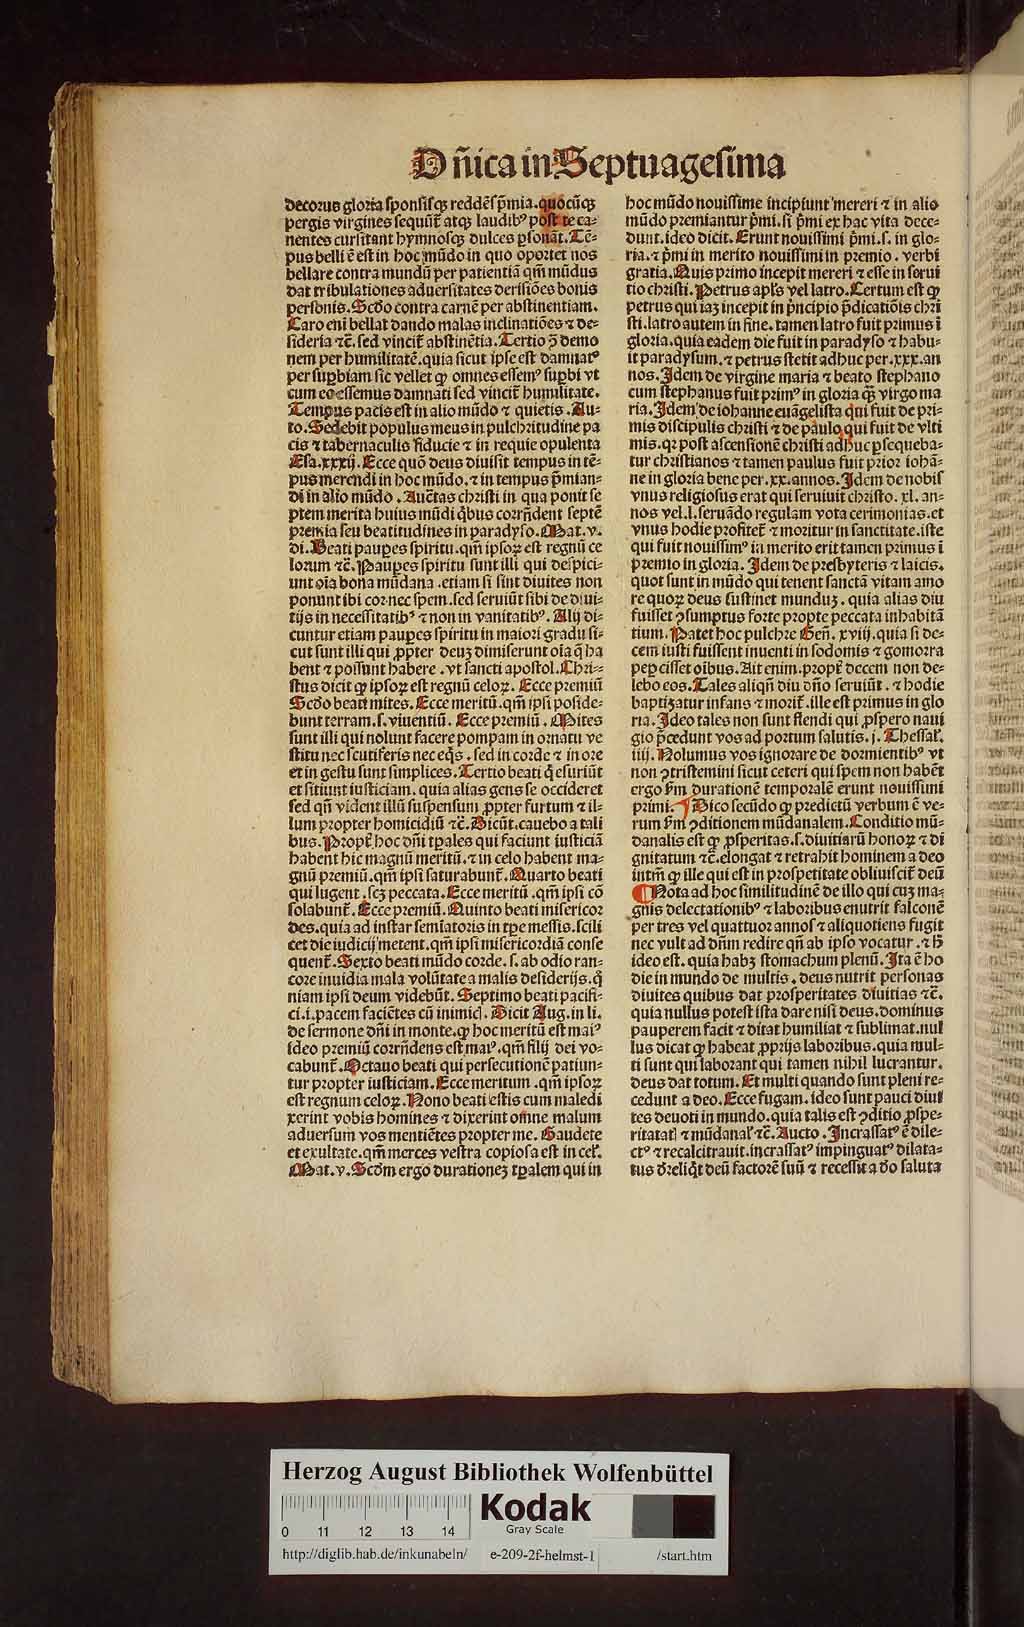 Dñica in Septuagesima
decorus gloria sponsisqꝫ reddēs p̄mia.quocūqꝫ
pergis virgines sequūt̄ atqꝫ laudibꝰ post te ca-
nentes cursitant hymnosqꝫ dulces ꝑsonāt. Tē-
pus belli ē est in hoc mūdo in quo oportet nos
bellare contra mundū per patientiā qm̄ mūdus
dat tribulationes aduersitates derisiōes bonis
personis. Scd̄o contra carnē per abstinentiam.
Caro eni bellat dando malas inclinatiōes ⁊ de-
sideria ⁊c̄. sed vincit̄ abstinētia. Tertio ꝯ̄ demo
nem per humilitatē. quia sicut ipse est damnatꝰ
per suꝑbiam sic vellet ꝙ omnes essemꝰ suꝑbi vt
cum eo essemus damnati sed vincit̄ humilitate.
Tempus pacis est in alio mūdo ⁊ quietis. Au-
to. Sedebit populus meus in pulchritudine pa
cis ⁊ tabernaculis fiducie ⁊ in requie opulenta
Esa.xxxij. Ecce quō deus diuisit tempus in tē-
pus merendi in hoc mūdo. ⁊ in tempus p̄mian-
di in alio mūdo. Auc̄tas christi in qua ponit se
ptem merita huius mūdi q̇bus corrn̄dent septē
premia seu beatitudines in paradyso. Mat.v.
di. Beati pauꝑes spiritu. qm̄ ipsoꝝ est regnū ce
lorum ⁊c̄. Pauꝑes spiritu sunt illi qui despici-
unt oīa bona mūdana. etiam si sint diuites non
ponunt ibi cor nec spem. sed seruiūt sibi de diui-
tijs in necessitatibꝰ ⁊ non in vanitatibꝰ. Alij di-
cuntur etiam pauꝑes spiritu in maiori gradu si-
cut sunt illi qui ꝓpter deuꝫ dimiserunt oīa q̄ ha
bent ⁊ possunt habere. vt sancti apostol. Chri-
stus dicit ꝙ ipsoꝝ est regnū celoꝝ. Ecce premiū
Scd̄o beati mites. Ecce meritū. qm̄ ipsi posside-
bunt terram. s. viuentiū. Ecce premiū. Mites
sunt illi qui nolunt facere pompam in ornatu ve
stitu nec scutiferis nec eq̇s. sed in corde ⁊ in ore
et in gestu sunt simplices. Tertio beati q̇ esuriūt
et sitiunt iusticiam. quia alias gens se occideret
sed qn̄ vident illū suspensum ꝓpter furtum ⁊ il-
lum propter homicidiū ⁊c̄. Dicūt. cauebo a tali
bus. Propt̄ hoc dn̄i tꝑales qui faciunt iusticiā
habent hic magnū meritū. ⁊ in celo habent ma-
gnū premiū. qm̄ ipsi saturabunt̄. Quarto beati
qui lugent. scꝫ peccata. Ecce meritū. qm̄ ipsi cō
solabunt̄. Ecce premiū. Quinto beati misericor
des. quia ad instar semiatoris in tꝑe messis. scili
cet die iudicij metent. qm̄ ipsi misericordiā conse
quent̄. Sexto beati mūdo corde. s. ab odio ran-
core inuidia mala volūtate a malis desiderijs. q̄
niam ipsi deum videbūt. Septimo beati pacifi-
ci. i. pacem faciētes cū inimicꝭ. Dicit Aug. in li.
de sermone dn̄i in monte. ꝙ hoc meritū est maiꝰ
ideo premiū corrn̄dens est maiꝰ. qm̄ filij dei vo-
cabunt̄. Octauo beati qui persecutionē patiun-
tur propter iusticiam. Ecce meritum. qm̄ ipsoꝝ
est regnum celoꝝ. Nono beati estis cum maledi
xerint vobis homines ⁊ dixerint omne malum
aduersum vos mentiētes propter me. Gaudete
et exultate. qm̄ merces vestra copiosa est in cel̄.
Mat.v. Scd̄m ergo durationeꝫ tꝑalem qui in
hoc mūdo nouissime incipiunt mereri ⁊ in alio
mūdo premiantur p̄mi. si p̄mi ex hac vita dece-
dunt. ideo dicit. Erunt nouissimi p̄mi. s. in glo-
ria. ⁊ p̄mi in merito nouissimi in premio. verbi
gratia. Quis primo incepit mereri ⁊ esse in serui
tio christi. Petrus apl̄s vel latro. Certum est ꝙ
petrus qui iaꝫ incepit in p̄ncipio p̄dicatiōis chri
sti. latro autem in fine. tamen latro fuit primus ī
gloria. quia eadem die fuit in paradyso ⁊ habu-
it paradysum. ⁊ petrus stetit adhuc per.xxx.an
nos. Idem de virgine maria ⁊ beato stephano
cum stephanus fuit primꝰ in gloria q̄ꝫ virgo ma
ria. Idem de iohanne euāgelista qui fuit de pri-
mis discipulis christi ⁊ de paulo qui fuit de vlti
mis. qr post ascensionē christi adhuc ꝑsequeba-
tur christianos ⁊ tamen paulus fuit prior iohā-
ne in gloria bene per.xx.annos. Idem de nobis
vnus religiosus erat qui seruiuit christo. xl. an-
nos vel.l. seruādo regulam vota cerimonias. et
vnus hodie profitet̄ ⁊ moritur in sanctitate. iste
qui fuit nouissimꝰ in merito erit tamen primus ī
premio in gloria. Idem de presbyteris ⁊ laicis.
quot sunt in mūdo qui tenent sanctā vitam amo
re quoꝝ deus sustinet munduꝫ. quia alias diu
fuisset ꝯsumptus forte propte peccata inhabitā
tium. Patet hoc pulchre Gen̄. xviij. quia si de-
cem iusti fuissent inuenti in sodomis ⁊ gomorra
peꝑcisset oibus. Ait enim. propt̄ decem non de-
lebo eos. Tales aliqn̄ diu dn̄o seruiūt. ⁊ hodie
baptizatur infans ⁊ morit̄. ille est primus in glo
ria. Ideo tales non sunt flendi qui ꝓspero naui
gio p̄cedunt vos ad portum salutis. j. Thessal̄.
iiij. Nolumus vos ignorare de dormientibꝰ vt
non ꝯtristemini sicut ceteri qui spem non habēt
ergo ẜm durationē temporalē erunt nouissimi
primi. ¶ Dico secūdo ꝙ predictū verbum ē ve-
rum ẜm ꝯditionem mūdanalem. Conditio mū-
danalis est ꝙ ꝓsperitas. s. diuitiarū honoꝝ ⁊ di
gnitatum ⁊c̄. elongat ⁊ retrahit hominem a deo
intm̄ ꝙ ille qui est in prospetitate obliuiscit̄ deū
¶ Nota ad hoc similitudinē de illo qui cuꝫ ma-
gnis delectationibꝰ ⁊ laboribus enutrit falconē
per tres vel quattuor annos ⁊ aliquotiens fugit
nec vult ad dn̄m redire qn̄ ab ipso vocatur. ⁊ h̄
ideo est. quia habꝫ stomachum plenū. Ita ē ho
die in mundo de multis. deus nutrit personas
diuites quibus dat prosperitates diuitias ⁊c̄.
quia nullus potest ista dare nisi deus. dominus
pauperem facit ⁊ ditat humiliat ⁊ sublimat. nul
lus dicat ꝙ habeat ꝓprijs laboribus. quia mul-
ti sunt qui laborant qui tamen nihil lucrantur.
deus dat totum. Et multi quando sunt pleni re-
cedunt a deo. Ecce fugam. ideo sunt pauci diui
tes deuoti in mundo. quia talis est ꝯditio ꝓspe-
ritatꝭ ⁊ mūdanal̄ ⁊c̄. Aucto. Incrassatꝰ ē dile-
ctꝰ ⁊ recalcitrauit. incrassatꝰ impinguatꝰ dilata-
tus dereliq̇t deū factorē suū ⁊ recessit a d̄o saluta
Herzog August Bibliothek Wolfenbüttel
Kodak
Gray Scale
0 11 12 13 14
http://diglib.hab.de/inkunabeln/ e-209-2f-helmst-1 /start.htm